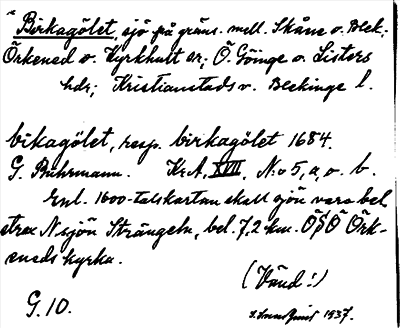 Birkagölet, sjö på gräns. mell. Skåne o. Blek.;
Örkened o. Kyrkhult sr; Ö. Göinge o. Listers
hdr; Kristianstads o. Blekinge l.
bikagölet, resp. birkagölet 1684.
G. Buhrmann. Kr.A. XVII, No 5, a, o. b.
Enl. 1600-talskartan skall sjön vara bel.
strax N sjön Strängeln, bel. 7,2 km. ÖSÖ Örk-
eneds kyrka.
(Vänd!)
G. 10. 1937.